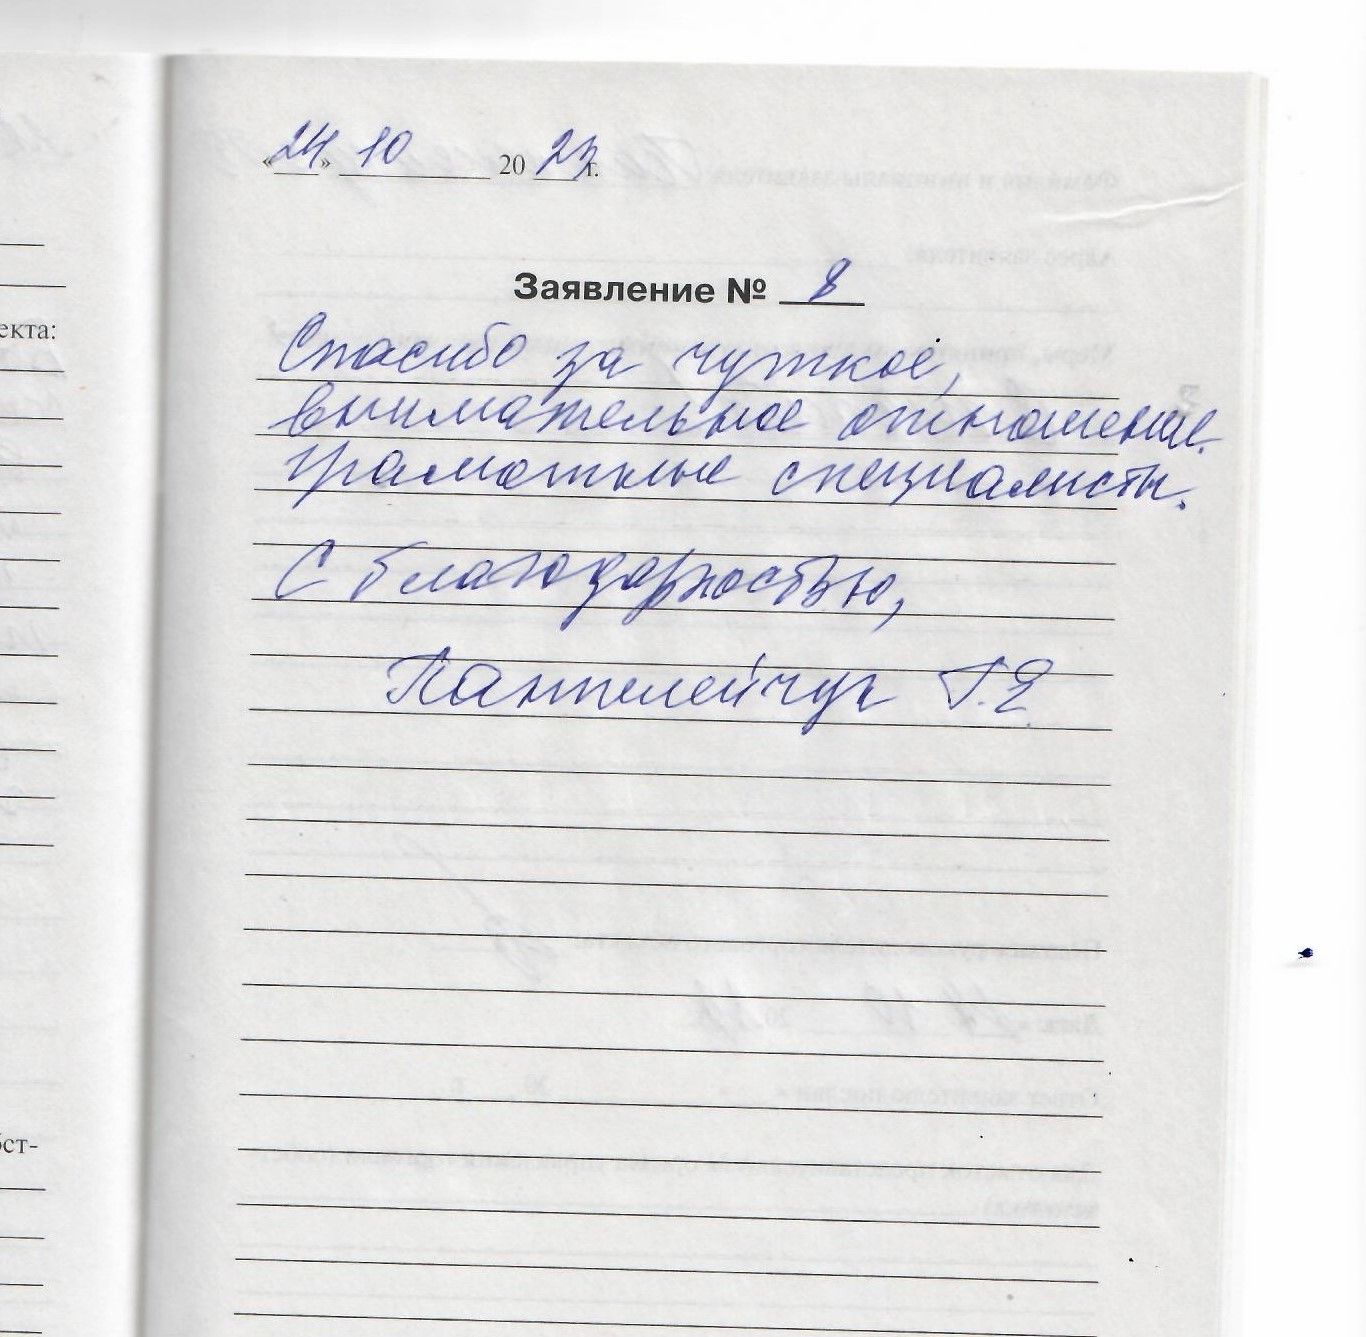 «24» 10 2023 г.
екта:
Заявление № 8
Спасибо за чуткое,
внимательное отношение.
грамотные специалисты.
С благодарностью,
Пантелейчук Г.Е
бст-